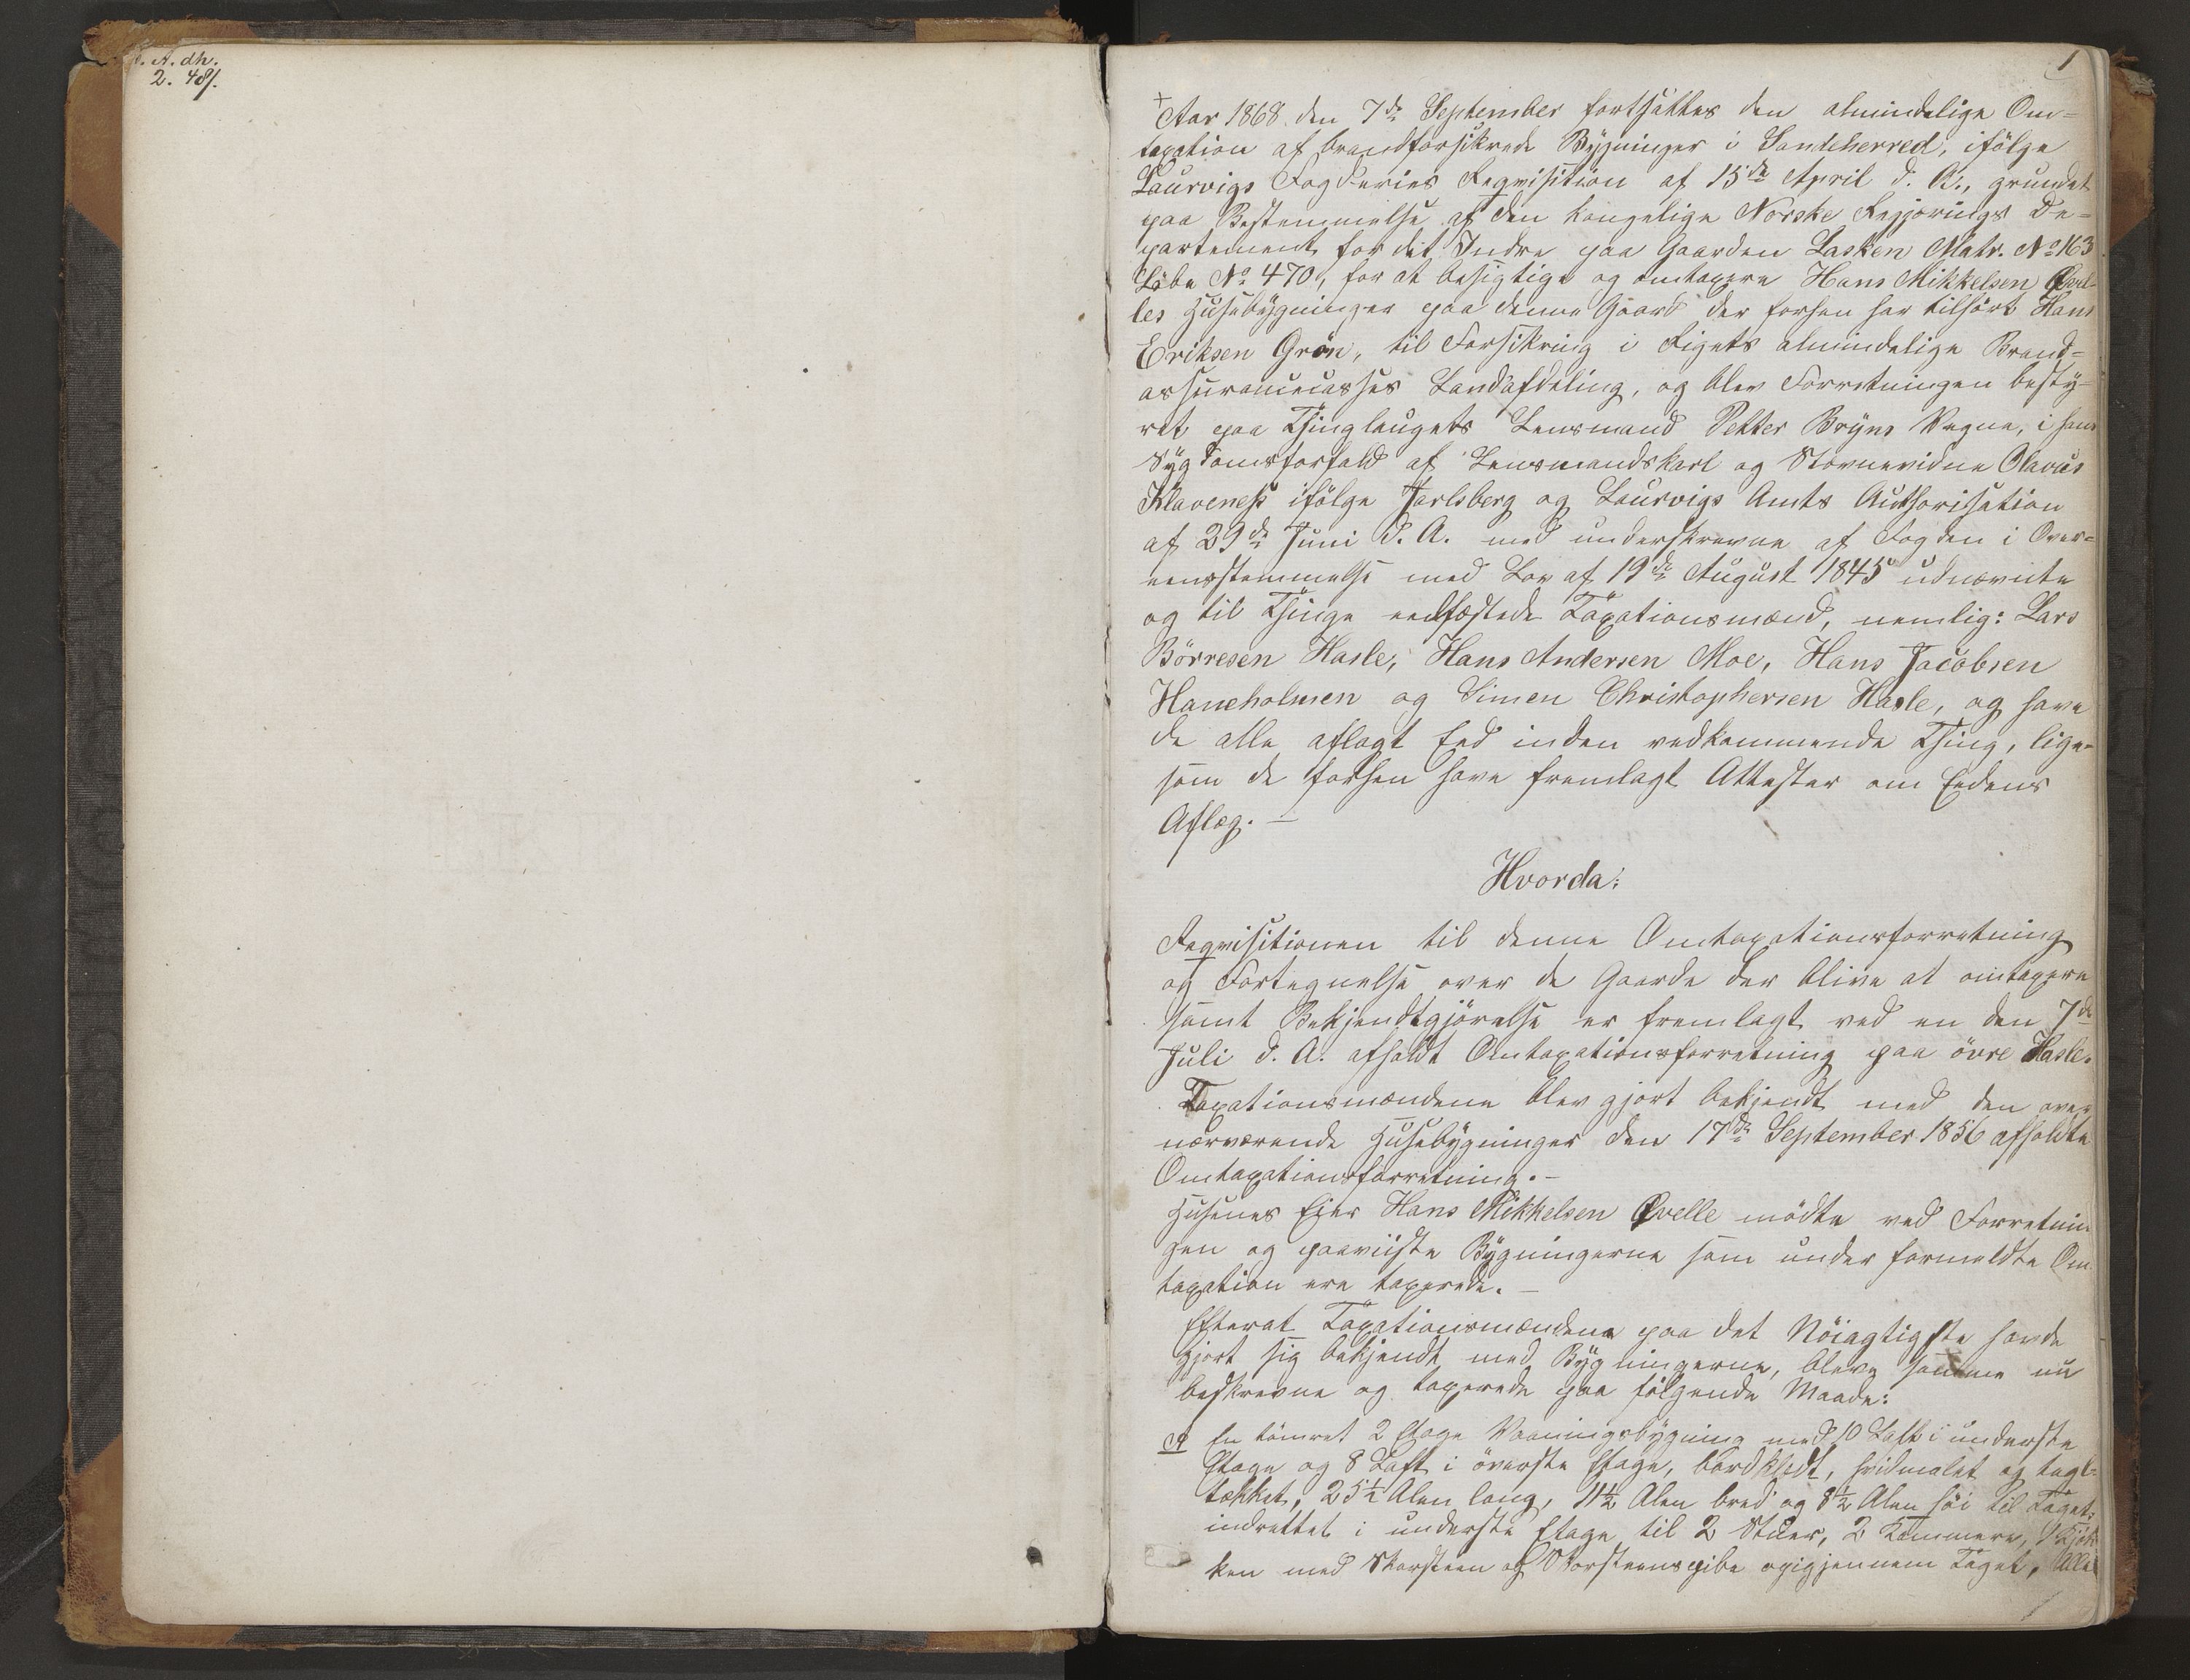 A. dh.
2. 48/.
1
+
Aar 1868 den 7de September fortsattes den almindelige Om=
taxation af brandforsikrede Bygninger i Sandeherred, ifölge
Laurvigs Fogderies Reqvisition af 15de April d. A., grundet
paa Bestemmelse af den kongelige Norske Regjerings De=
partement for det Indre paa Gaarden Lasken Matr. No 163
Löbe No 470, for at besigtige og omtaxere Hans Mikkelsen Qvel-
les Husebygninger paa denne Gaard der forhen har tilhört Hans
Eriksen Grön, til Forsikring i Rigets almindelige Brand=
assurancecasses Landafdeling, og blev Forretningen besty-
ret paa Thinglaugets Lensmand Petter Bryns Vegne, i hans
Sygdomsforfald af Lensmandskarl og Stævnevidne Olavus
Klaveness ifölge Jarlsberg og Laurvigs Amts Authorisation
af 29de Juni d. A. med underskrevne af Fogden i Over=
eensstemmelse med Lov af 19de August 1845 udnævnte
og til Thinge eedfæstede Taxationsmænd, nemlig: Lars
Börresen Hasle, Hans Andersen Moe, Hans Jacobsen
Haneholmen og Simen Christophersen Hasle, og have
de alle aflagt Eed inden vedkommende Thing, lige-
som de forhen have fremlagt Attester om Eedens
Aflæg. —
Hvorda:
Reqvisitionen til denne Omtaxationsforretning
og Fortegnelse over de Gaarde der blive at omtaxere
samt Bekjendtgjörelse er fremlagt ved en den 7de
Juli d. A. afholdt Omtaxationsforretning paa övre Hasle.
Taxationsmændene blev gjort bekjendt med den over
nærværende Husebygninger den 17de September 1856 afholdte
Omtaxationsforretning. —
Husenes Eier Hans Mikkelsen Qvelle mödte ved Forretnin
gen og paaviiste Bygningerne som under formeldte Om
taxation ere taxerede. —
Efterat Taxationsmændene paa det Nöiagtigste havde
gjort sig bekjendt med Bygningerne, bleve samme nu
beskrevne og taxerede paa fölgende Maade:
A En tömret 2 Etage Vaaningsbygning med 10 Laft i underste
Etage og 8 Laft i överste Etage, bordklædt, hvidmalet og tagl-
tækket, 25½ Alen lang, 11½ Alen bred og 8½ Alen höi til Taget;
indrettet i underste Etage til 2 Stuer, 2 Kammere, 1 Kjök
ken med Skorsteen og Skorsteenspibe opigjennem Taget,